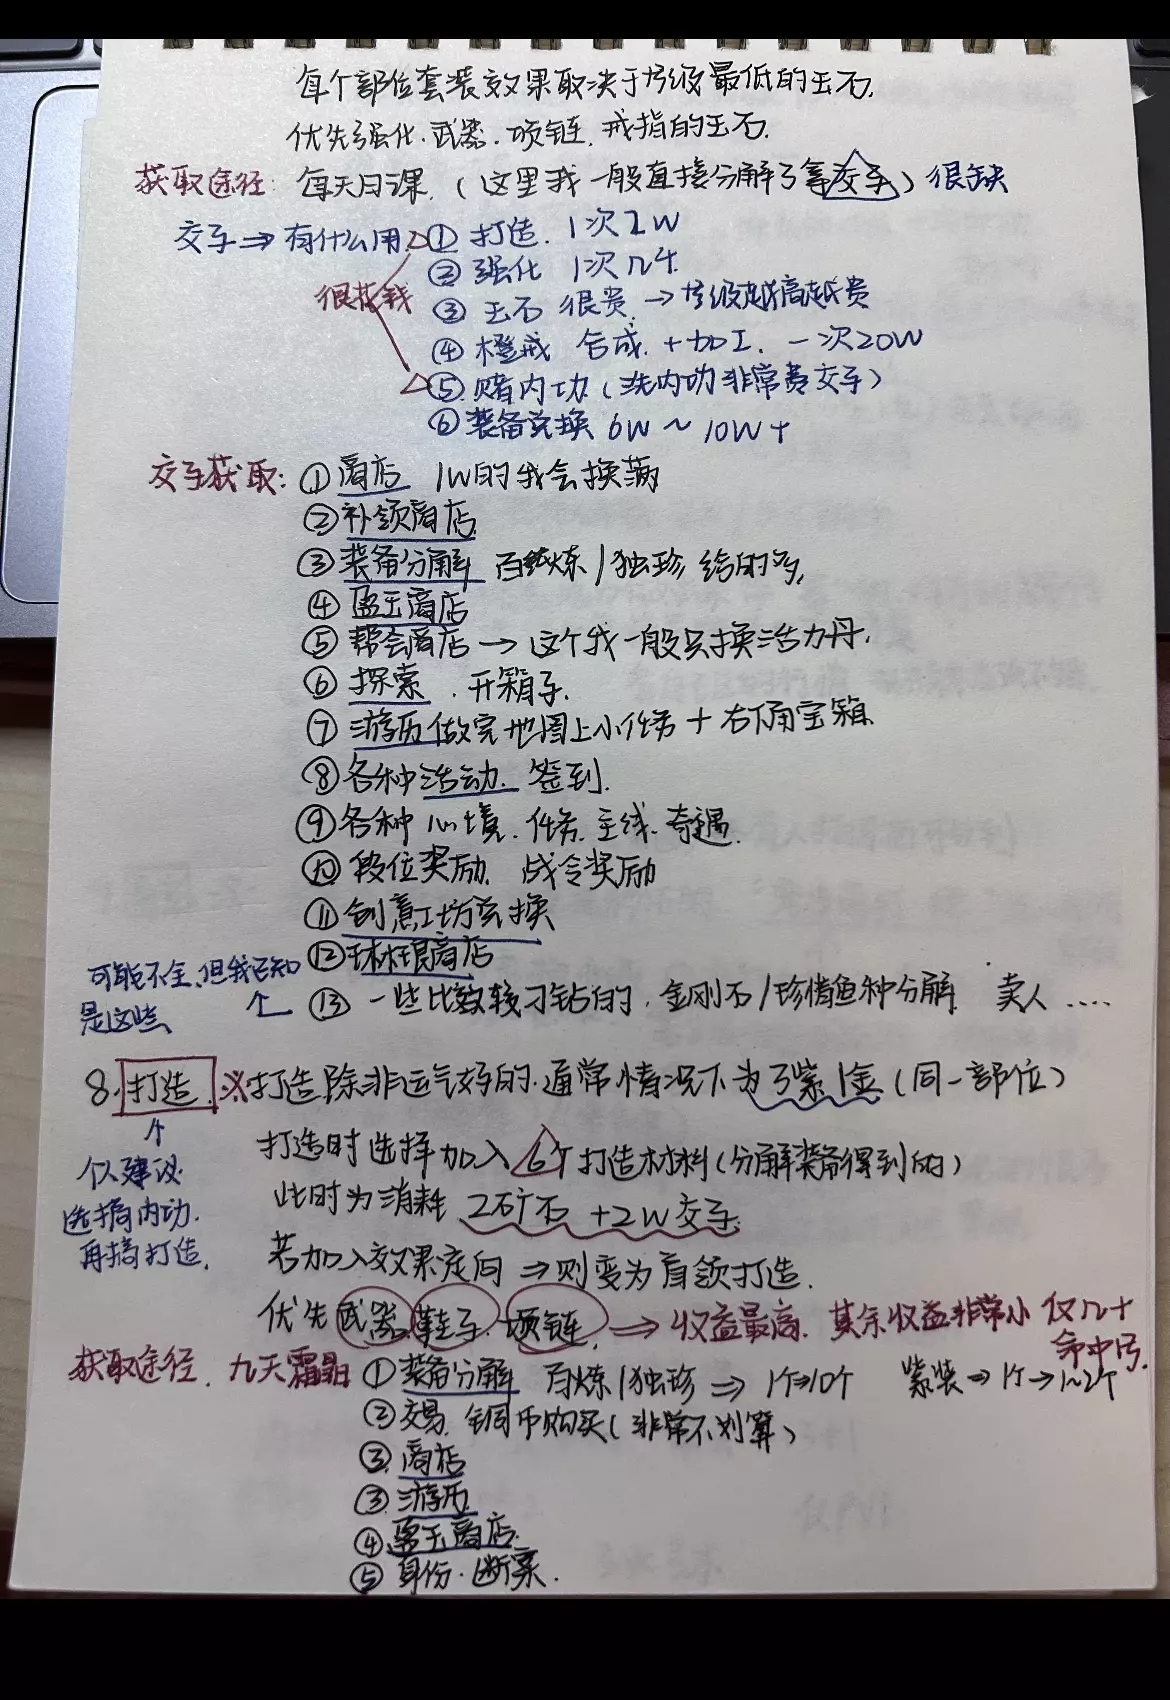 每个部位套装效果取决于等级最低的玉石.
优先强化.武器.项链.戒指的玉石.
获取途径: 每天日课.(这里我一般直接分解了拿交子)很缺
交子⇒有什么用. ① 打造. 1次2W
② 强化 1次几千.
很花钱 ③ 玉石 很贵. →等级越高越贵
④ 橙戒 合成.+加工. 一次20W
⑤.赌内功.(洗内功非常费交子)
⑥ 装备兑换 6W~10W+
交子获取: ① 商店 1W的我会换满
②补领商店.
③装备分解 百炼/独珍 给的多,
④ 盈玉商店
⑤ 帮会商店→这个我一般只换活力丹.
⑥ 探索 . 开箱子.
⑦ 游历做完地图上小任务+右下角宝箱.
⑧各种活动. 签到.
⑨各种 心境. 任务. 主线. 奇遇.
⑩ 段位奖励. 战令奖励
⑪创意工坊兑换
⑫琳琅商店
可能不全、但我已知
是这些 ← ⑬ 一些比较较刁钻的. 金刚石/珍惜鱼种分解. 卖人 .....
8.打造.※打造除非运气好的.通常情况下为了紫1金(同一部位)
打造时选择加入6个打造材料(分解装备得到的)
此时为消耗 2矿石+2W交子.
若加入效果定向⇒则变为肩领打造.
个人建议
选搞内功.
再搞打造.
优先武器 鞋子. 项链. ⇒ 收益最高. 其余收益非常小 仅几十
命中亏.
获取途径. 九天霜 ①装备分解 百炼/独珍 ⇒ 1个⇒10个 紫装⇒1个→1~2个
②交易. 铜币购买(非常不划算)
③.商店
③.游历.
④.盈玉商店.
⑤ 身份.断案.